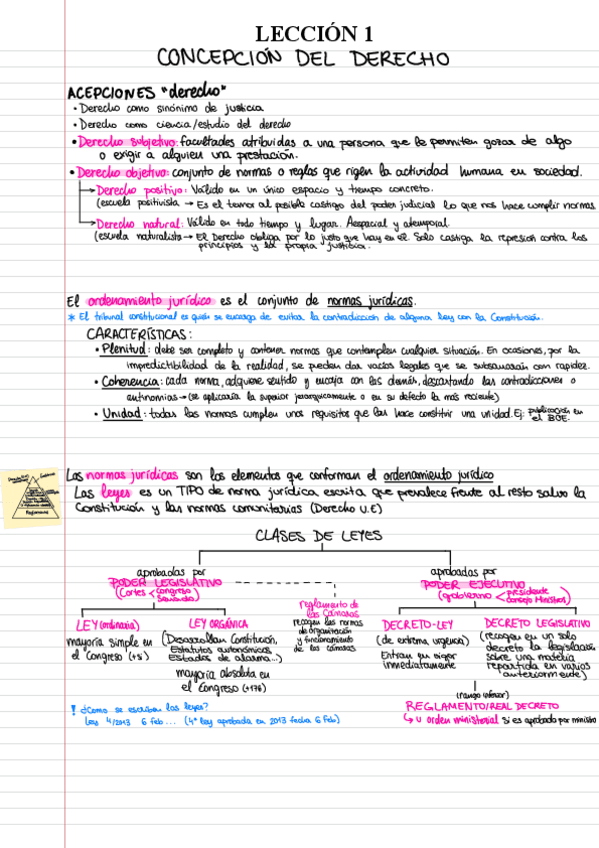 LECCIÓN 1
CONCEPCIÓN DEL DERECHO
ACEPCIONES "derecho"
• Derecho como sinónimo de justicia
• Derecho como ciencia/estudio del derecho
• Derecho subjetivo: facultades atribuidas a una persona que le permiten gozar de algo
o exigir a alguien una prestación.
• Derecho objetivo: conjunto de normas o reglas que rigen la actividad humana en sociedad.
→ Derecho positivo: Válido en un único espacio y tiempo concreto.
(escuela positivista → Es el temor al posible castigo del poder judicial lo que nos hace cumplir normas
→ Derecho natural: Válido en todo tiempo y lugar. Aespacial y atemporal.
(escuela naturalista → El Derecho obliga por lo justo que hay en él. Solo castiga la represión contra los
principios y la propia justicia.
El ordenamiento jurídico es el conjunto de normas jurídicas.
* El tribunal constitucional es quién se encarga de evitar la contradicción de alguna ley con la Constitución.
CARACTERÍSTICAS:
• Plenitud: debe ser completo y contener normas que contemplen cualquier situación. En ocasiones, por la
impredictibilidad de la realidad, se pueden dar vacíos legales que se subsanarán con rapidez.
• Coherencia: cada norma, adquiere sentido y encaja con las demás, descartando las contradicciones o
antinomias → (se aplicaría la superior jerárquicamente o en su defecto la más reciente)
• Unidad: todas las normas cumplen unos requisitos que las hace constituir una unidad. Ej: publicación en
el BOE.
Las normas jurídicas son los elementos que conforman el ordenamiento jurídico
Las leyes es un TIPO de norma jurídica escrita que prevalece frente al resto salvo la
Constitución y las normas comunitarias (Derecho U.E)
Reglamentos
CLASES DE LEYES
aprobadas por
PODER LEGISLATIVO
(Cortes < Congreso
Senado
aprobadas por
PODER EJECUTIVO
(gobierno < presidente
consejo Ministros)
LEY (ordinaria)
mayoría simple en
el Congreso (+sí)
LEY ORGÁNICA
(Desarrollan Constitución,
Estatutos autonómicos,
Estados de alarma...)
mayoría absoluta en
el congreso (+176)
reglamento de
las Cámaras
recogen las normas
de organización
y funcionamiento
de las cámaras
DECRETO-LEY
(de extrema urgencia)
Entran en vigor
inmediatamente
DECRETO LEGISLATIVO
(recogen en un solo
decreto la legislación
sobre una materia
repartida en varios
anteriormente)
(rango inferior)
REGLAMENTO/REAL DECRETO
↳ u orden ministerial si es aprobado por ministro
! ¿Como se escriben las leyes?
Ley 4/2013 6 feb ... (4ª ley aprobada en 2013 fecha 6 Feb)